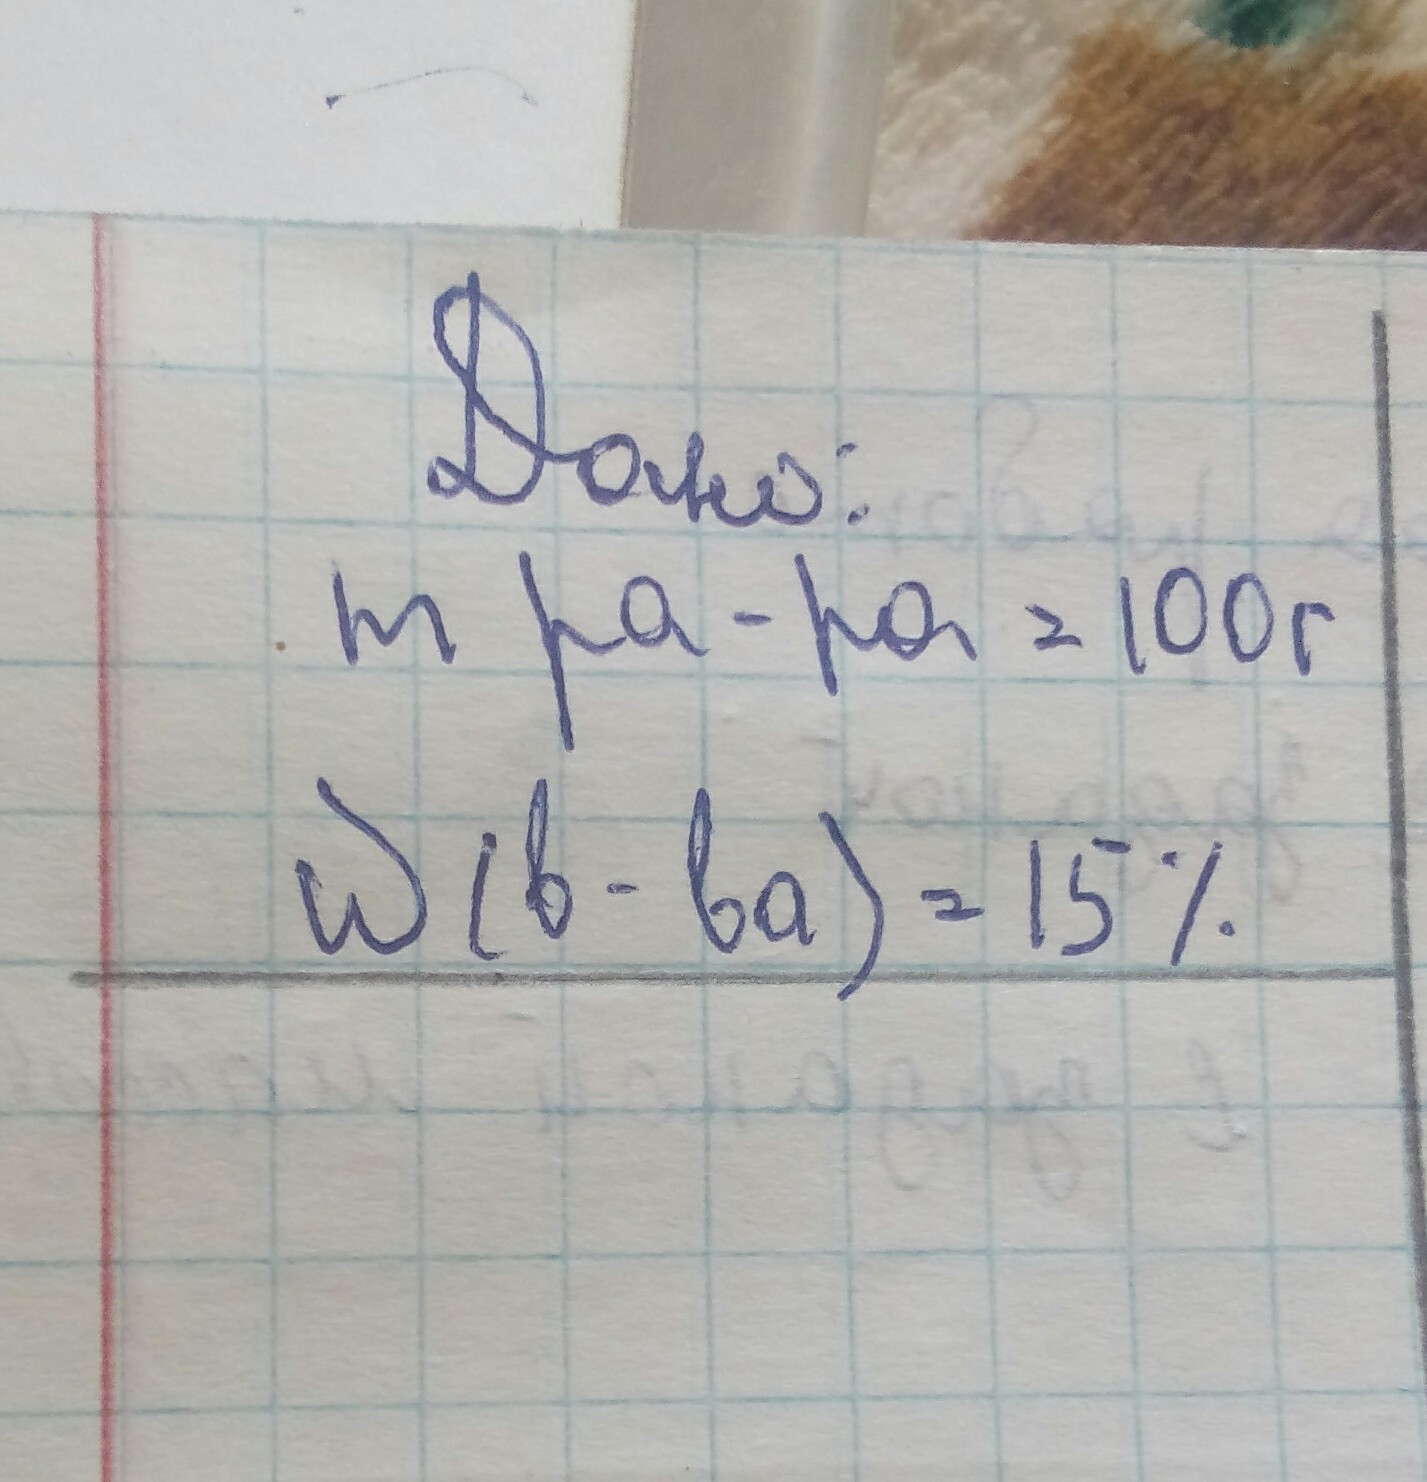 Дано:
m ра-ра = 100г
W(в-ва) = 15%